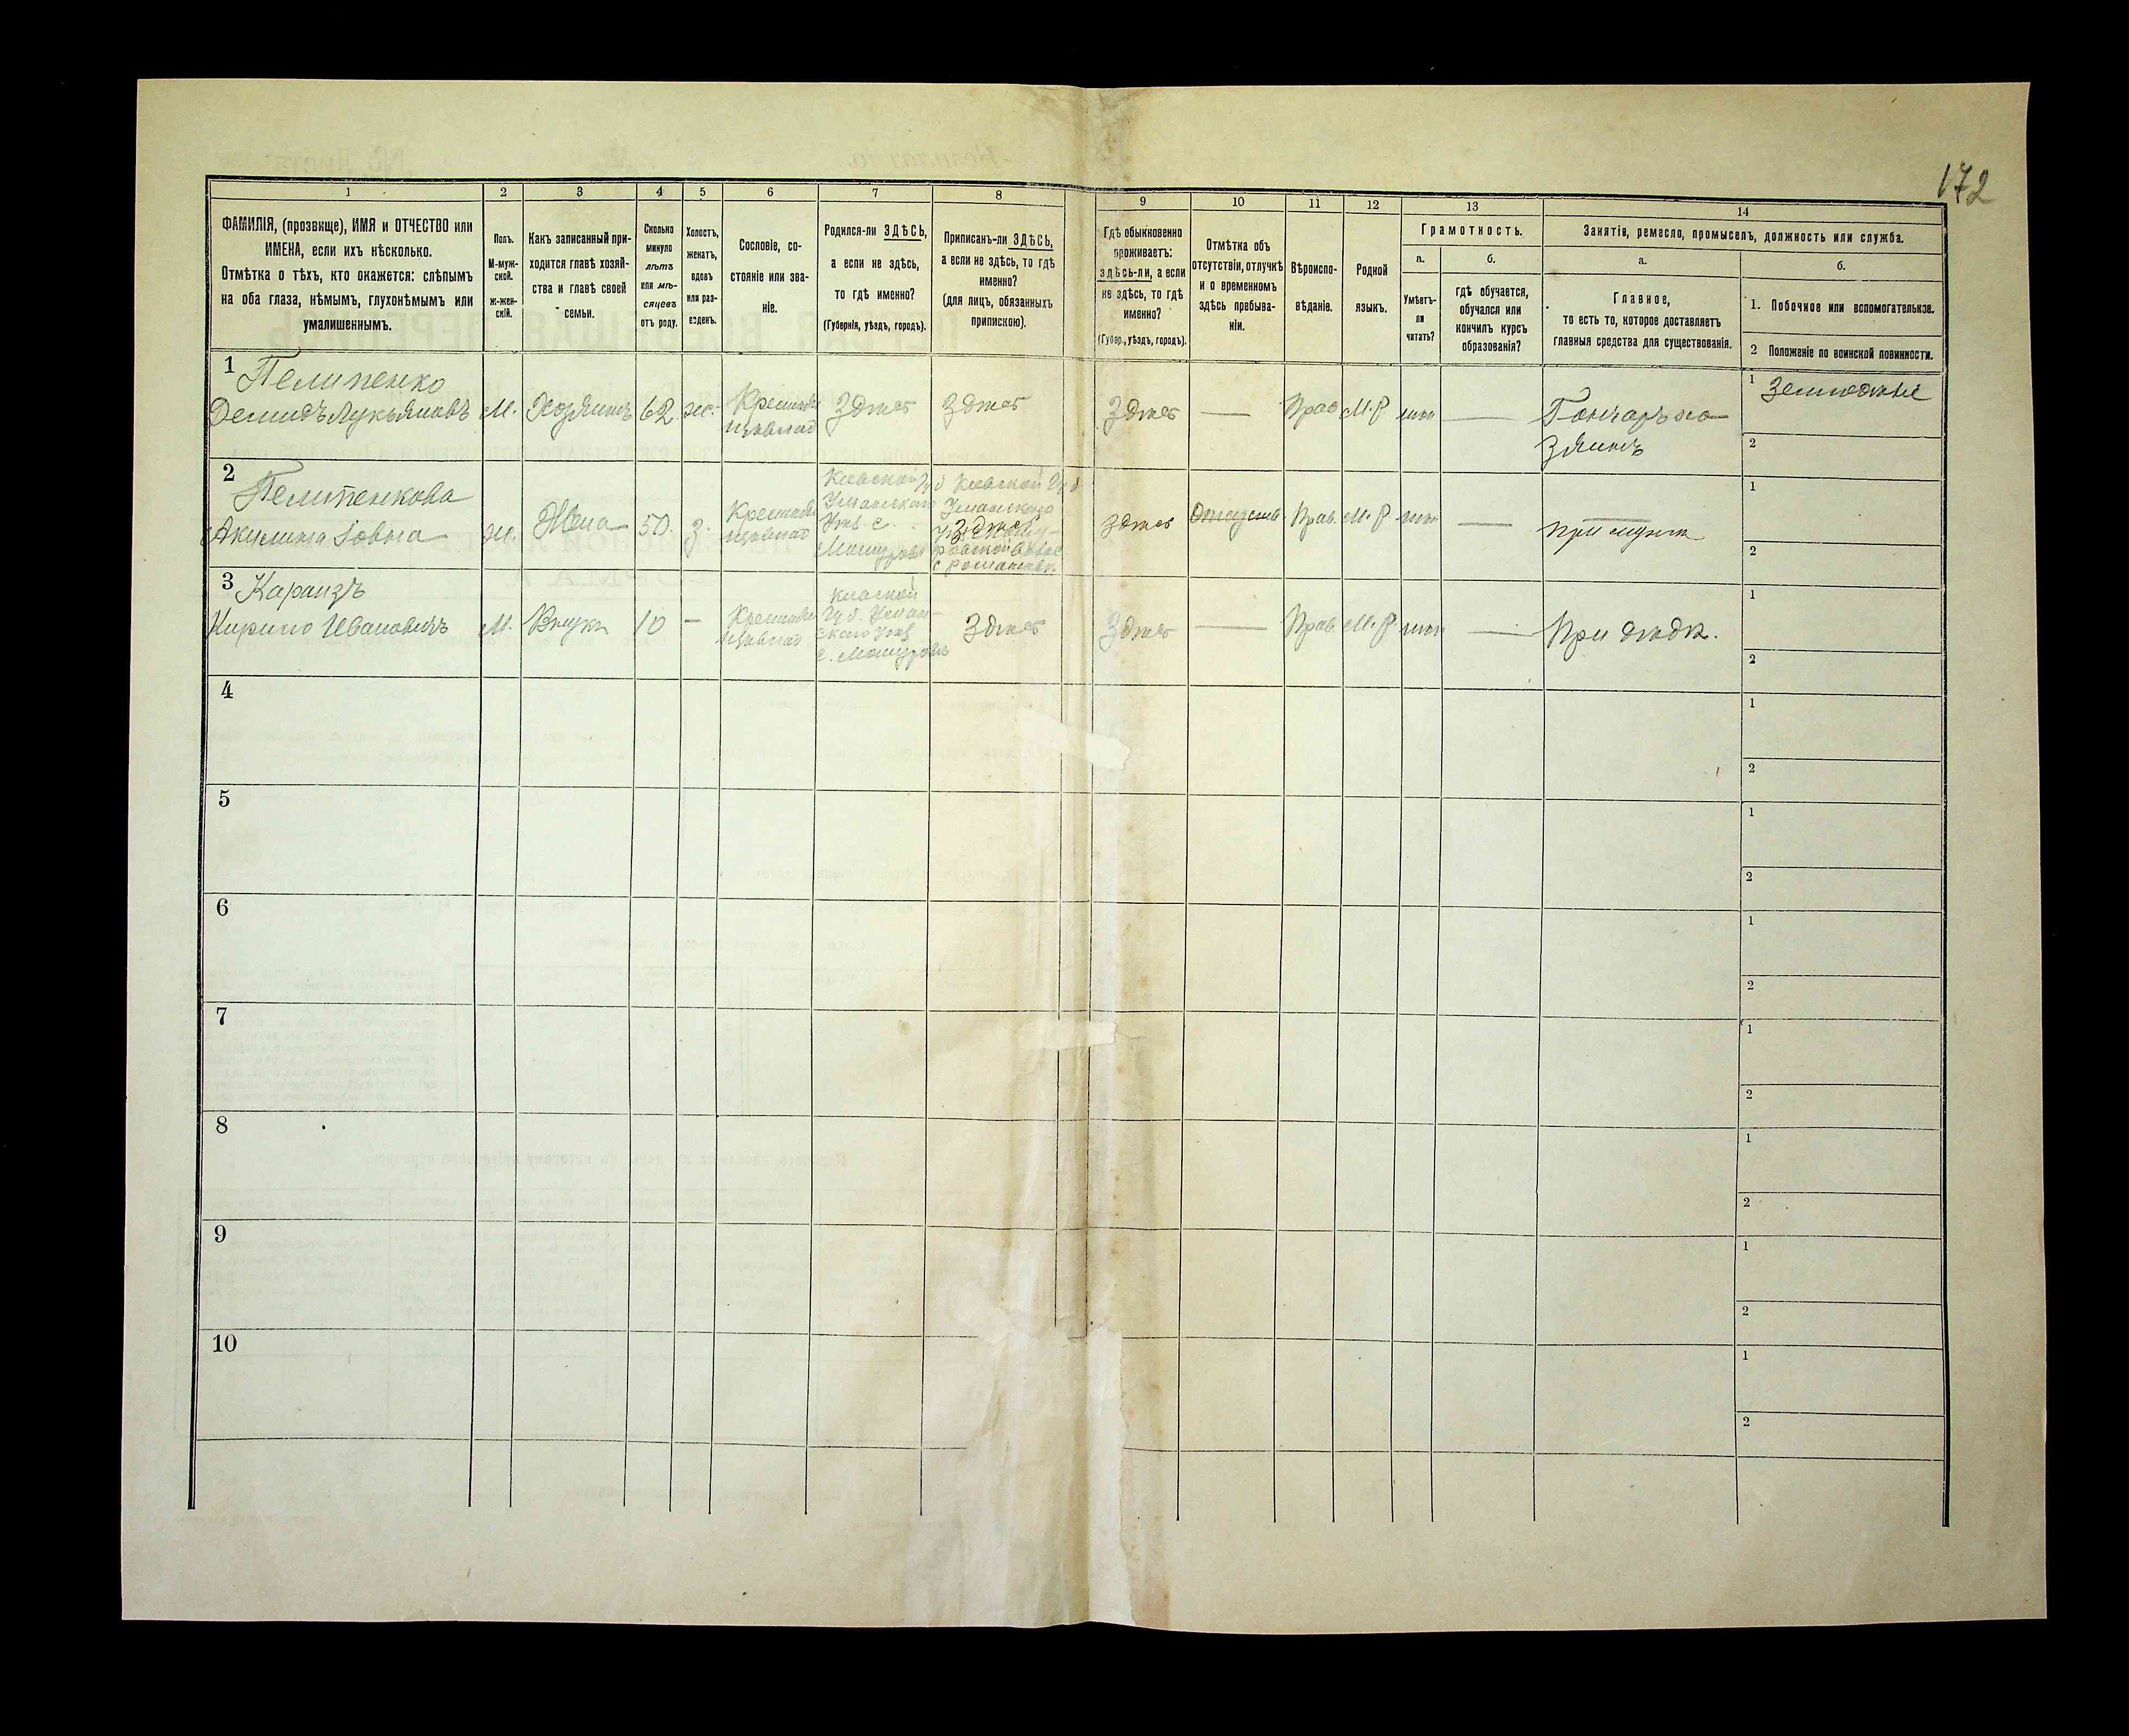 172
1
2
3
4
5
6
7
8
9
10
11
12
13
14
ФАМИЛІЯ, (прозвище), ИМЯ и ОТЧЕСТВО или
ИМЕНА, если ихъ нѣсколько.
Отмѣтка о тѣхъ, кто окажется: слѣпымъ
на оба глаза, нѣмымъ, глухонѣмымъ или
умалишеннымъ.
Полъ.
М-муж-
ской.
ж-жен-
скій.
Какъ записанный при-
ходится главѣ хозяй-
ства и главѣ своей
семьи.
Сколько
минуло
лѣтъ
или мѣ-
сяцевъ
отъ роду.
Холостъ,
женатъ,
вдовъ
или раз-
веденъ.
Сословіе, со-
стояніе или зва-
ніе.
Родился-ли ЗДѢСЬ,
а если не здѣсь,
то гдѣ именно?
(Губернія, уѣздъ, городъ).
Приписанъ-ли ЗДѢСЬ,
а если не здѣсь, то гдѣ
именно?
(для лицъ, обязанныхъ
припискою).
Гдѣ обыкновенно
проживаетъ:
здѣсь-ли, а если
не здѣсь, то гдѣ
именно?
(Губер., уѣздъ, городъ).
Отмѣтка объ
отсутствіи, отлучкѣ
и о временномъ
здѣсь пребыва-
ніи.
Вѣроиспо-
вѣданіе.
Родной
языкъ.
Грамотность.
а.
Умѣетъ-
ли
читать?
б.
гдѣ обучается,
обучался или
кончилъ курсъ
образованія?
Занятія, ремесло, промыселъ, должность или служба.
а.
Главное,
то есть то, которое доставляетъ
главныя средства для существованія.
б.
1. Побочное или вспомогательное.
2 Положеніе по воинской повинности.
1 Пелипенко
Демидъ Лукьяновъ
М.
Хозяинъ
62
ж.
здѣсь
здѣсь
здѣсь
—
Прав
М. Р
—
Гончаръ хо-
зяинъ
1
2
2 Пелипенкова
Акилина Іовна
ж.
Жена
50.
з.
Кіевской Губ
Уманского
Уѣз с.
Кіевской Губ
Уманского
здѣсь
Отсутств.
Прав.
М. Р
—
при мужѣ
1
2
3 Караизъ
Кирило Ивановичъ
М.
Внукъ
10
—
Кіевской
Губ. Уман-
ского Уѣз
здѣсь
здѣсь
—
Прав.
М. Р
—
При дѣдѣ.
1
2
4
1
2
5
1
2
6
1
2
7
1
2
8
1
2
9
1
2
10
1
2